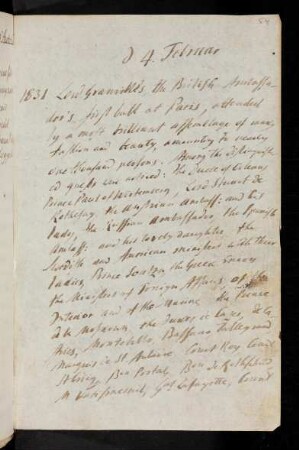 54
d 4. Februar
1831 Lord Granville's, the British Ambassa
dor's, first ball at Paris, attended
by a most brilliant assemblage of rank
fashion and beauty, amounting to nearly
one thousand persons. Among the distinguish
ed guests were noticed: The Duke of Orleans,
Prince Paul of Wirtemberg, Lord Stuart de
Rothesay, the Austrian Ambass: and his
Lady, the Russian Ambassador, the Spanish
Ambass: and his lovely daughter, the
Swedish and American ministers with their
Ladies, Prince Soutzo, the Greek Envoy
the Ministers of Foreign Affairs, of the
Interior and of the Marine, the Prince
de la Moskowa, the Dukes
Montebello, Bassano,
Marquis de St. Count Rey, Count
St Bon Portal, Bon de Rothschild
M Genl Lafayette, Count